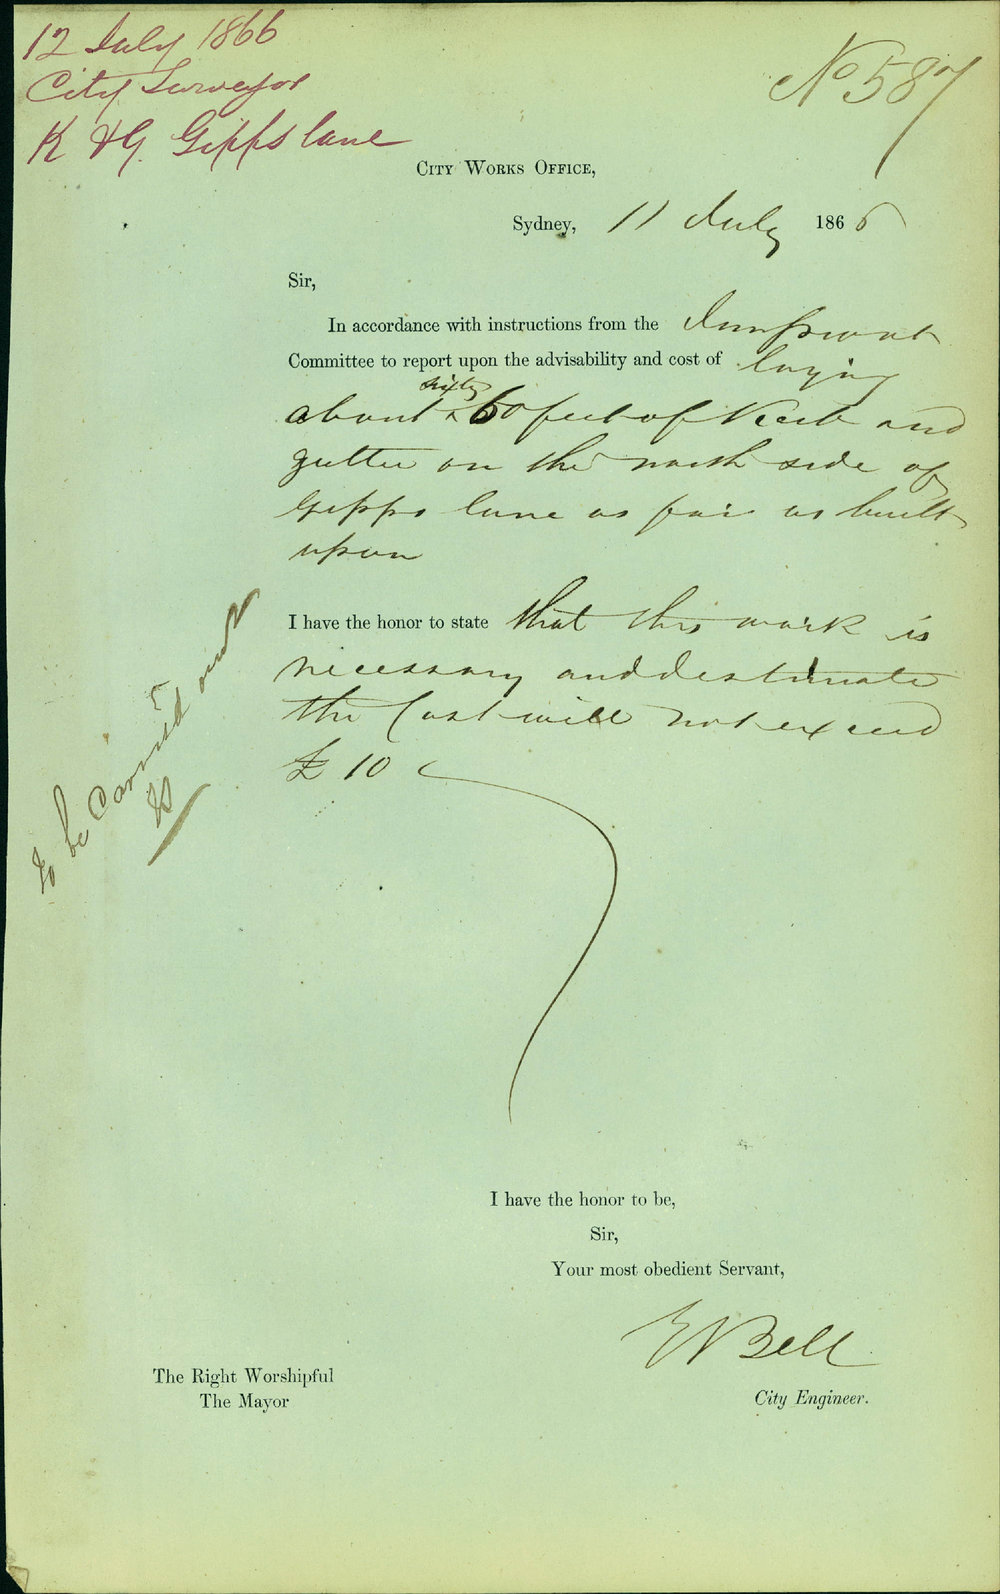 12 July 1866
City Surveyor
K & G. Gipps lane
No 587
CITY WORKS OFFICE,
Sydney, 11 July 1866
Sir,
In accordance with instructions from the Improvmt
Committee to report upon the advisability and cost of laying
sixty
about 60 feet of Kerb and
gutter on the north side of
Gipps lane as far as built
upon
I have the honor to state that this work is
necessary and I estimate
the Cost will not exceed
£ 10
To be carried out
I have the honor to be,
Sir,
Your most obedient Servant,
E Bell
City Engineer.
The Right Worshipful
The Mayor